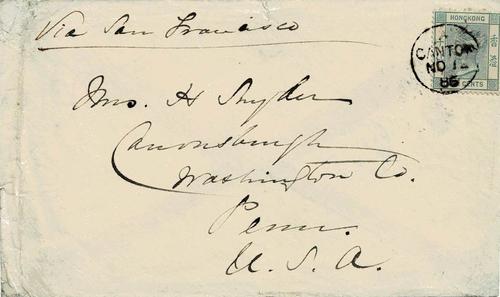 Via San Francisco
HONGKONG
CANTON
NO 12
86
CENTS
Mrs. H Snyder
Canonsburgh
Washington Co.
Penn.
U. S. A.